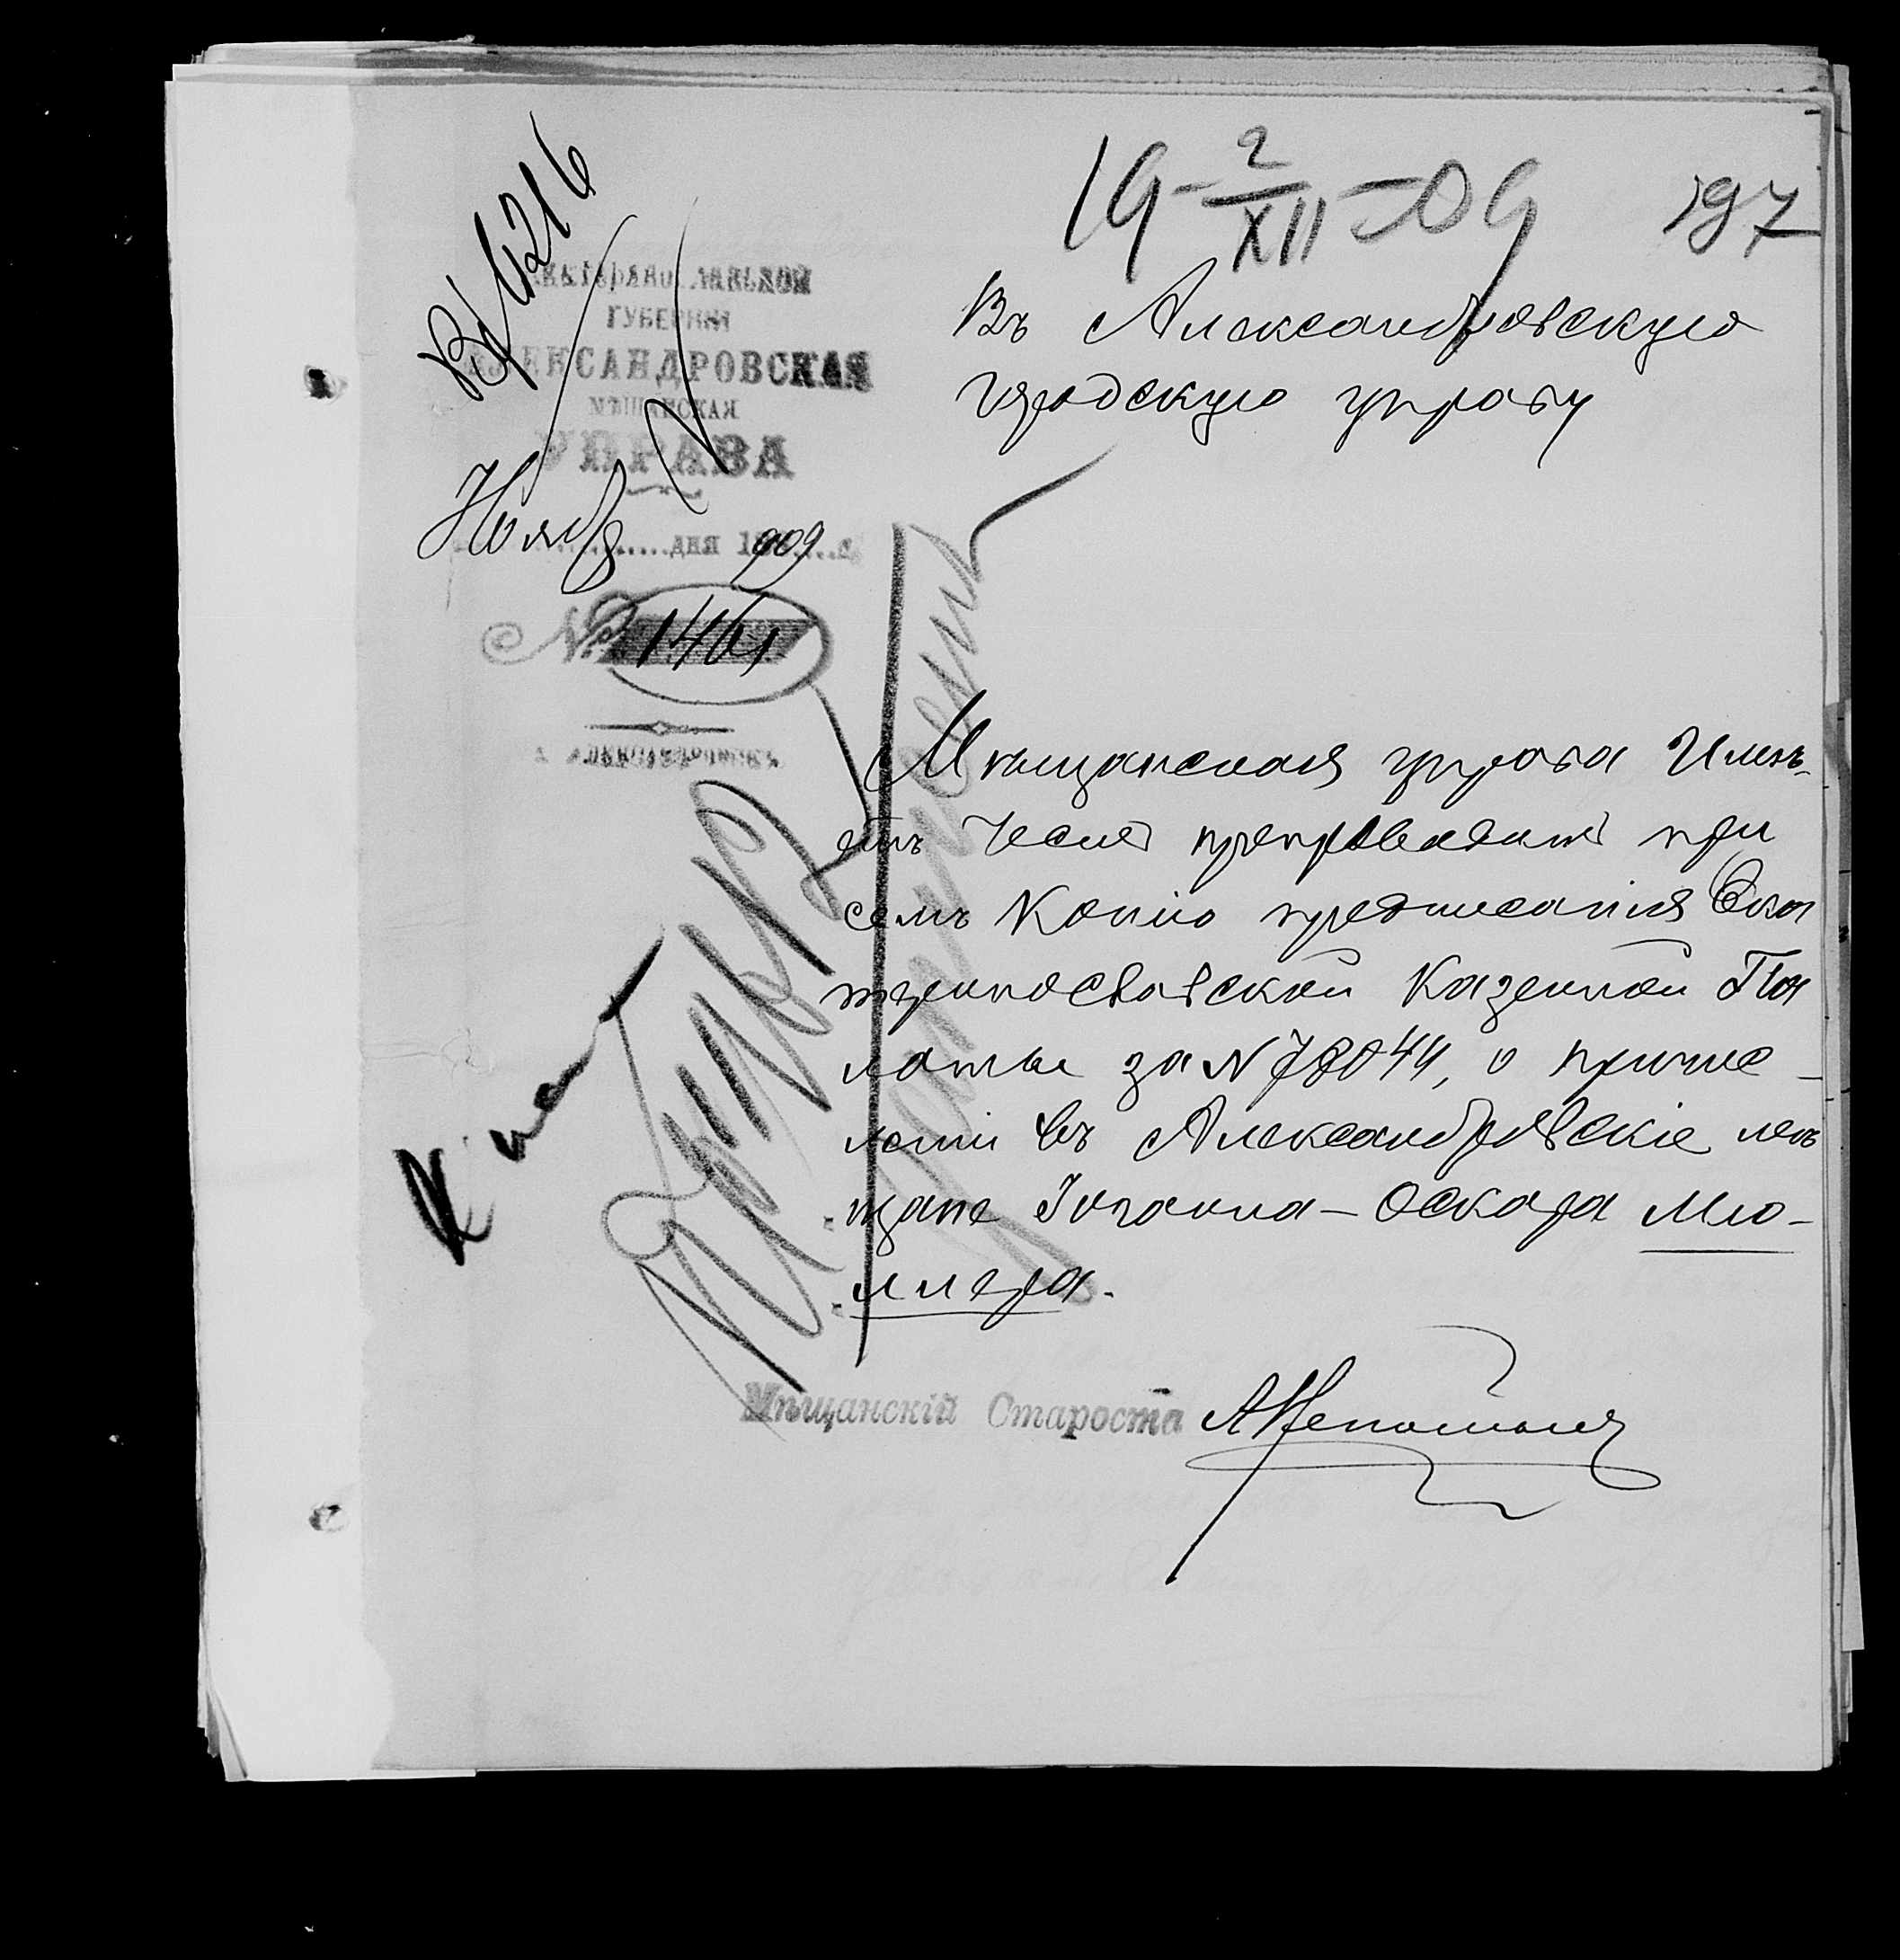 19 2/XII 09
197
Вх 4216
ЕКАТЕРИНОСЛАВСКОЙ
ГУБЕРНІИ
АЛЕКСАНДРОВСКАЯ
МѢЩАНСКАЯ
УПРАВА
Ноябр
дня 1909 г.
№ 1461
г. АЛЕКСАНДРОВСКЪ
Въ Александровскую
городскую управу
Мѣщанская управа Имѣ-
етъ честь препроводить при
семъ Копію предписанія Ека
теринославской Казенной Па
латы за N 78044, о причис-
леніи въ Александровскіе мѣ
щане Іоганна-Оскара Мю-
ллера.
Мѣщанскій Староста